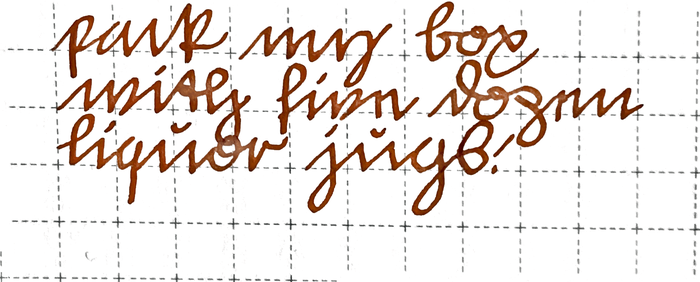 pack my box
with five dozen
liquor jugs!